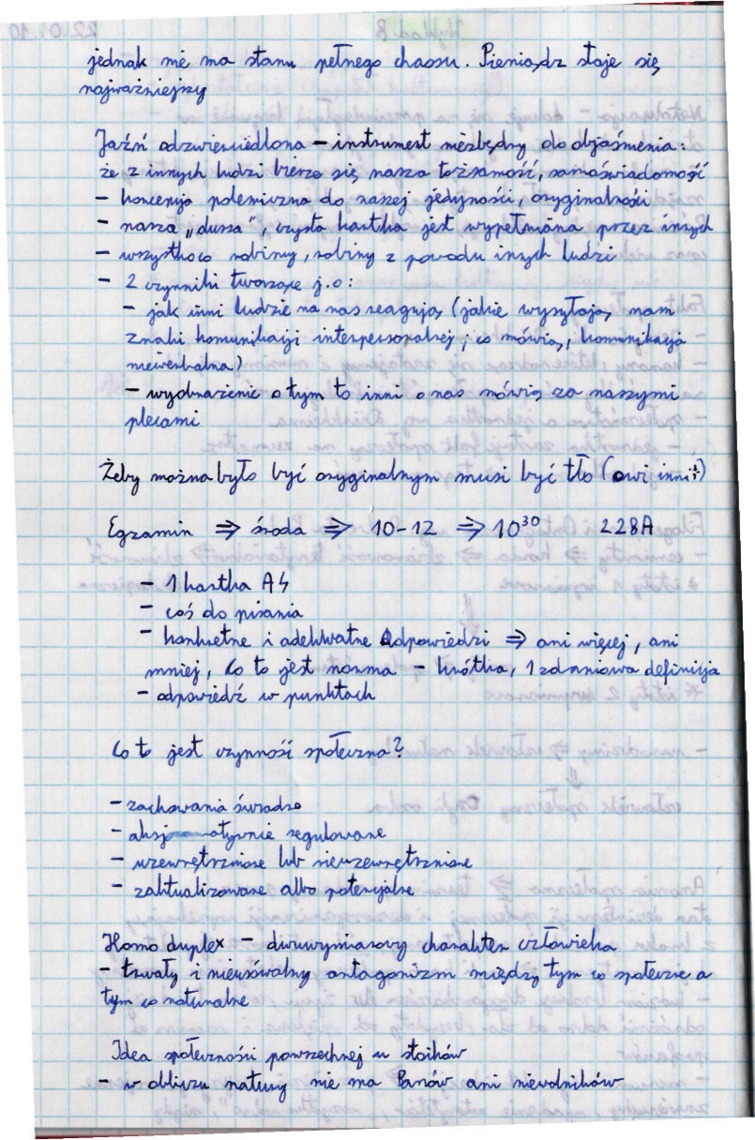 jednak nie ma stanu pełnego chaosu. Pieniądz staje się
najważniejszy
Jaźń odzwierciedlona – instrument niezbędny do objaśnienia:
że z innych ludzi bierze się nasza tożsamość, samoświadomość
– koncepcja polemiczna do naszej jedyności, oryginalności
– nasza „dusza", czysta kartka jest wypełniana przez innych
– wszystko co robimy, robimy z powodu innych ludzi
– 2 czynniki tworzące j.o:
– jak inni ludzie na nas reagują, (jakie wysyłają, nam
znaki komunikacji interpersonalnej; co mówią, komunikacja
niewerbalna)
– wyobrażenie o tym to inni o nas mówią za naszymi
plecami
Żeby można było być oryginalnym musi być tło (owi inni)
Egzamin ⇒ środa ⇒ 10-12 ⇒ 10³⁰ 228A
– 1 kartka A4
– coś do pisania
– konkretne i adekwatne odpowiedzi ⇒ ani więcej, ani
mniej, co to jest norma – krótka, 1 zdaniowa definicja
– odpowiedź w punktach
Co to jest czynność społeczna?
– zachowania świadome
– aksjonatywnie regulowane
– uzewnętrznione lub nieuzewnętrznione
– zaktualizowane albo potencjalne
Homo duplex – dwuwymiarowy charakter człowieka
– trwały i nieusówalny antagonizm między tym co społeczne a
tym co naturalne
Idea społeczności powszechnej u stoików
– w obliczu natury nie ma Panów ani niewolników